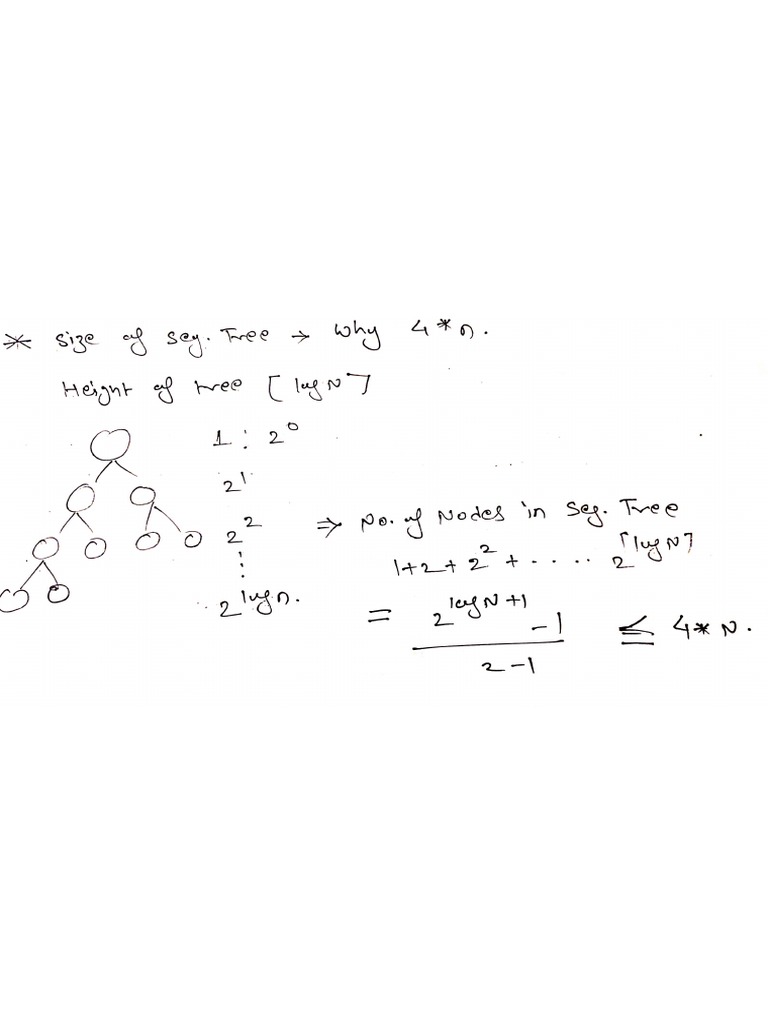 * Size of Seg. Tree → Why 4*n.
Height of tree ⌈log N⌉
1 : 2^0
2^1
2^2
⋮
2^log n.
⇒ No. of Nodes in Seg. Tree
1+2+2^2+ .... 2^⌈log N⌉
= (2^(log N+1) - 1) / (2-1) ≤ 4*N.